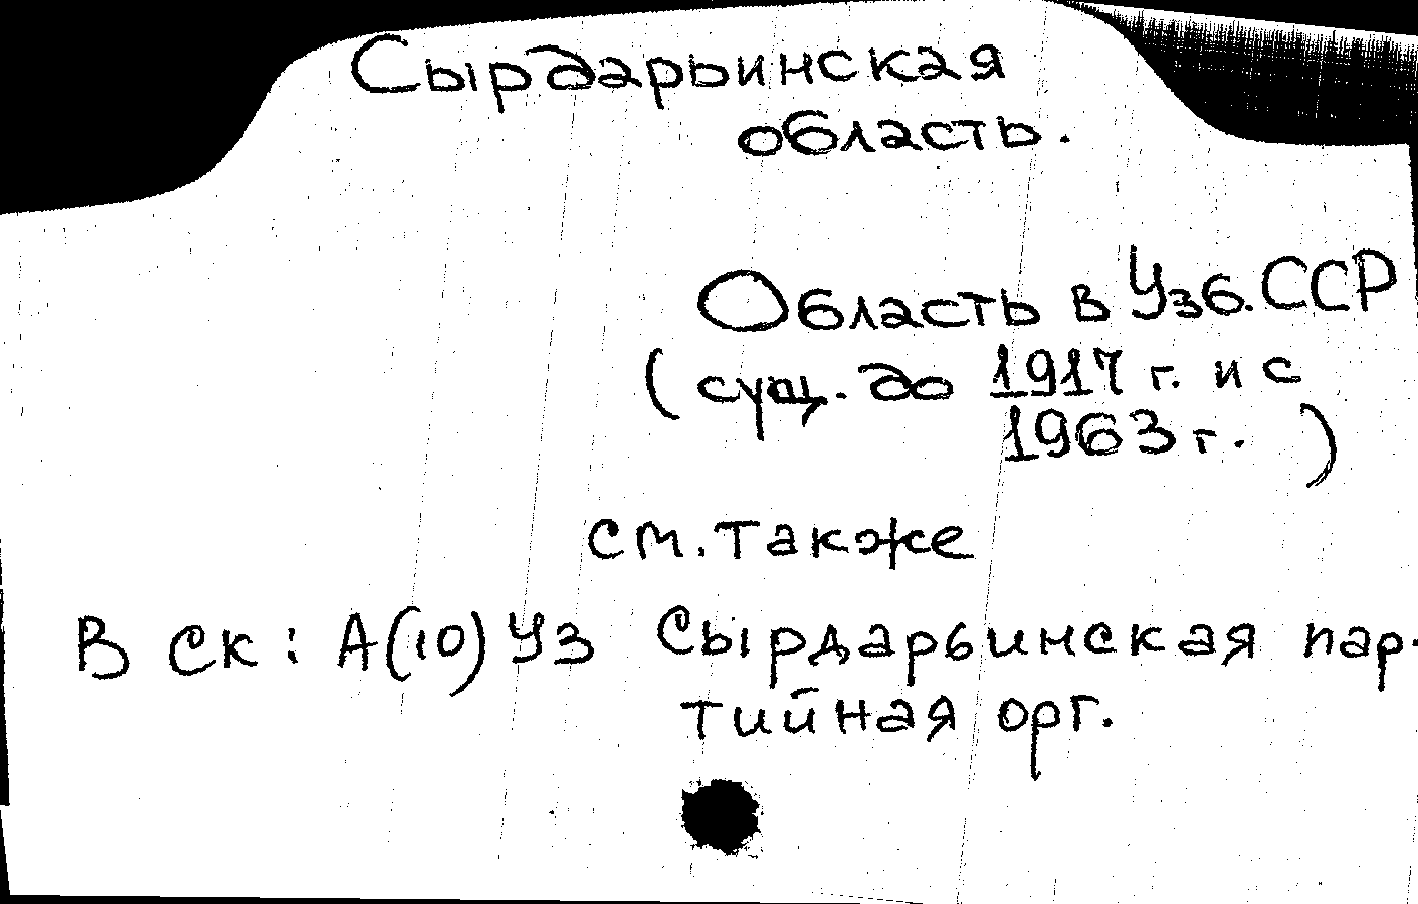 Сырдарьинская
область.
Область в Узб. ССР
(сущ. до 1917 г. и с
1963 г. )
см. также
В ск: А(10)Уз Сырдарьинская пар-
тийная орг.